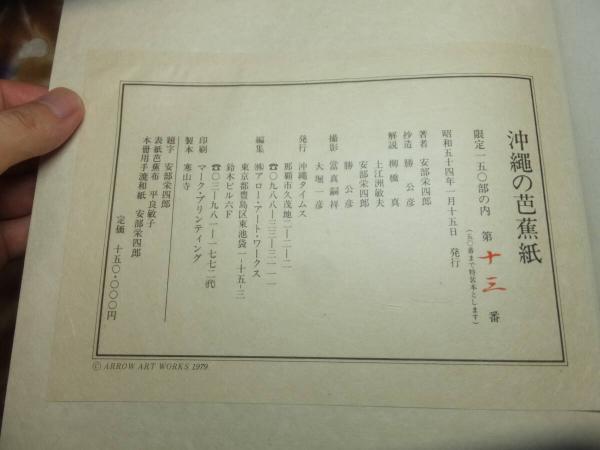 沖縄の芭蕉紙
限定一五〇部の内 第 十三 番
(五〇番まで特装本とします)
昭和五十四年一月十五日 発行
著者 安部栄四郎
抄造 勝公彦
解説 柳橋真
上江洲敏夫
安部栄四郎
勝公彦
撮影 當真嗣祥
大堀一彦
発行 沖縄タイムス
那覇市久茂地二―二―二
☎〇九八八―三三―三一一一
編集 ㈱アロー・アート・ワークス
東京都豊島区東池袋一―十五―三
鈴木ビル六F
☎〇三―九八一―一七七二㈹
印刷 マーク・プリンティング
製本 寒山寺
題字 安部栄四郎
表紙芭蕉布 平良敏子
本冊用手漉和紙 安部栄四郎
定価 十五〇・〇〇〇円
© ARROW ART WORKS 1979